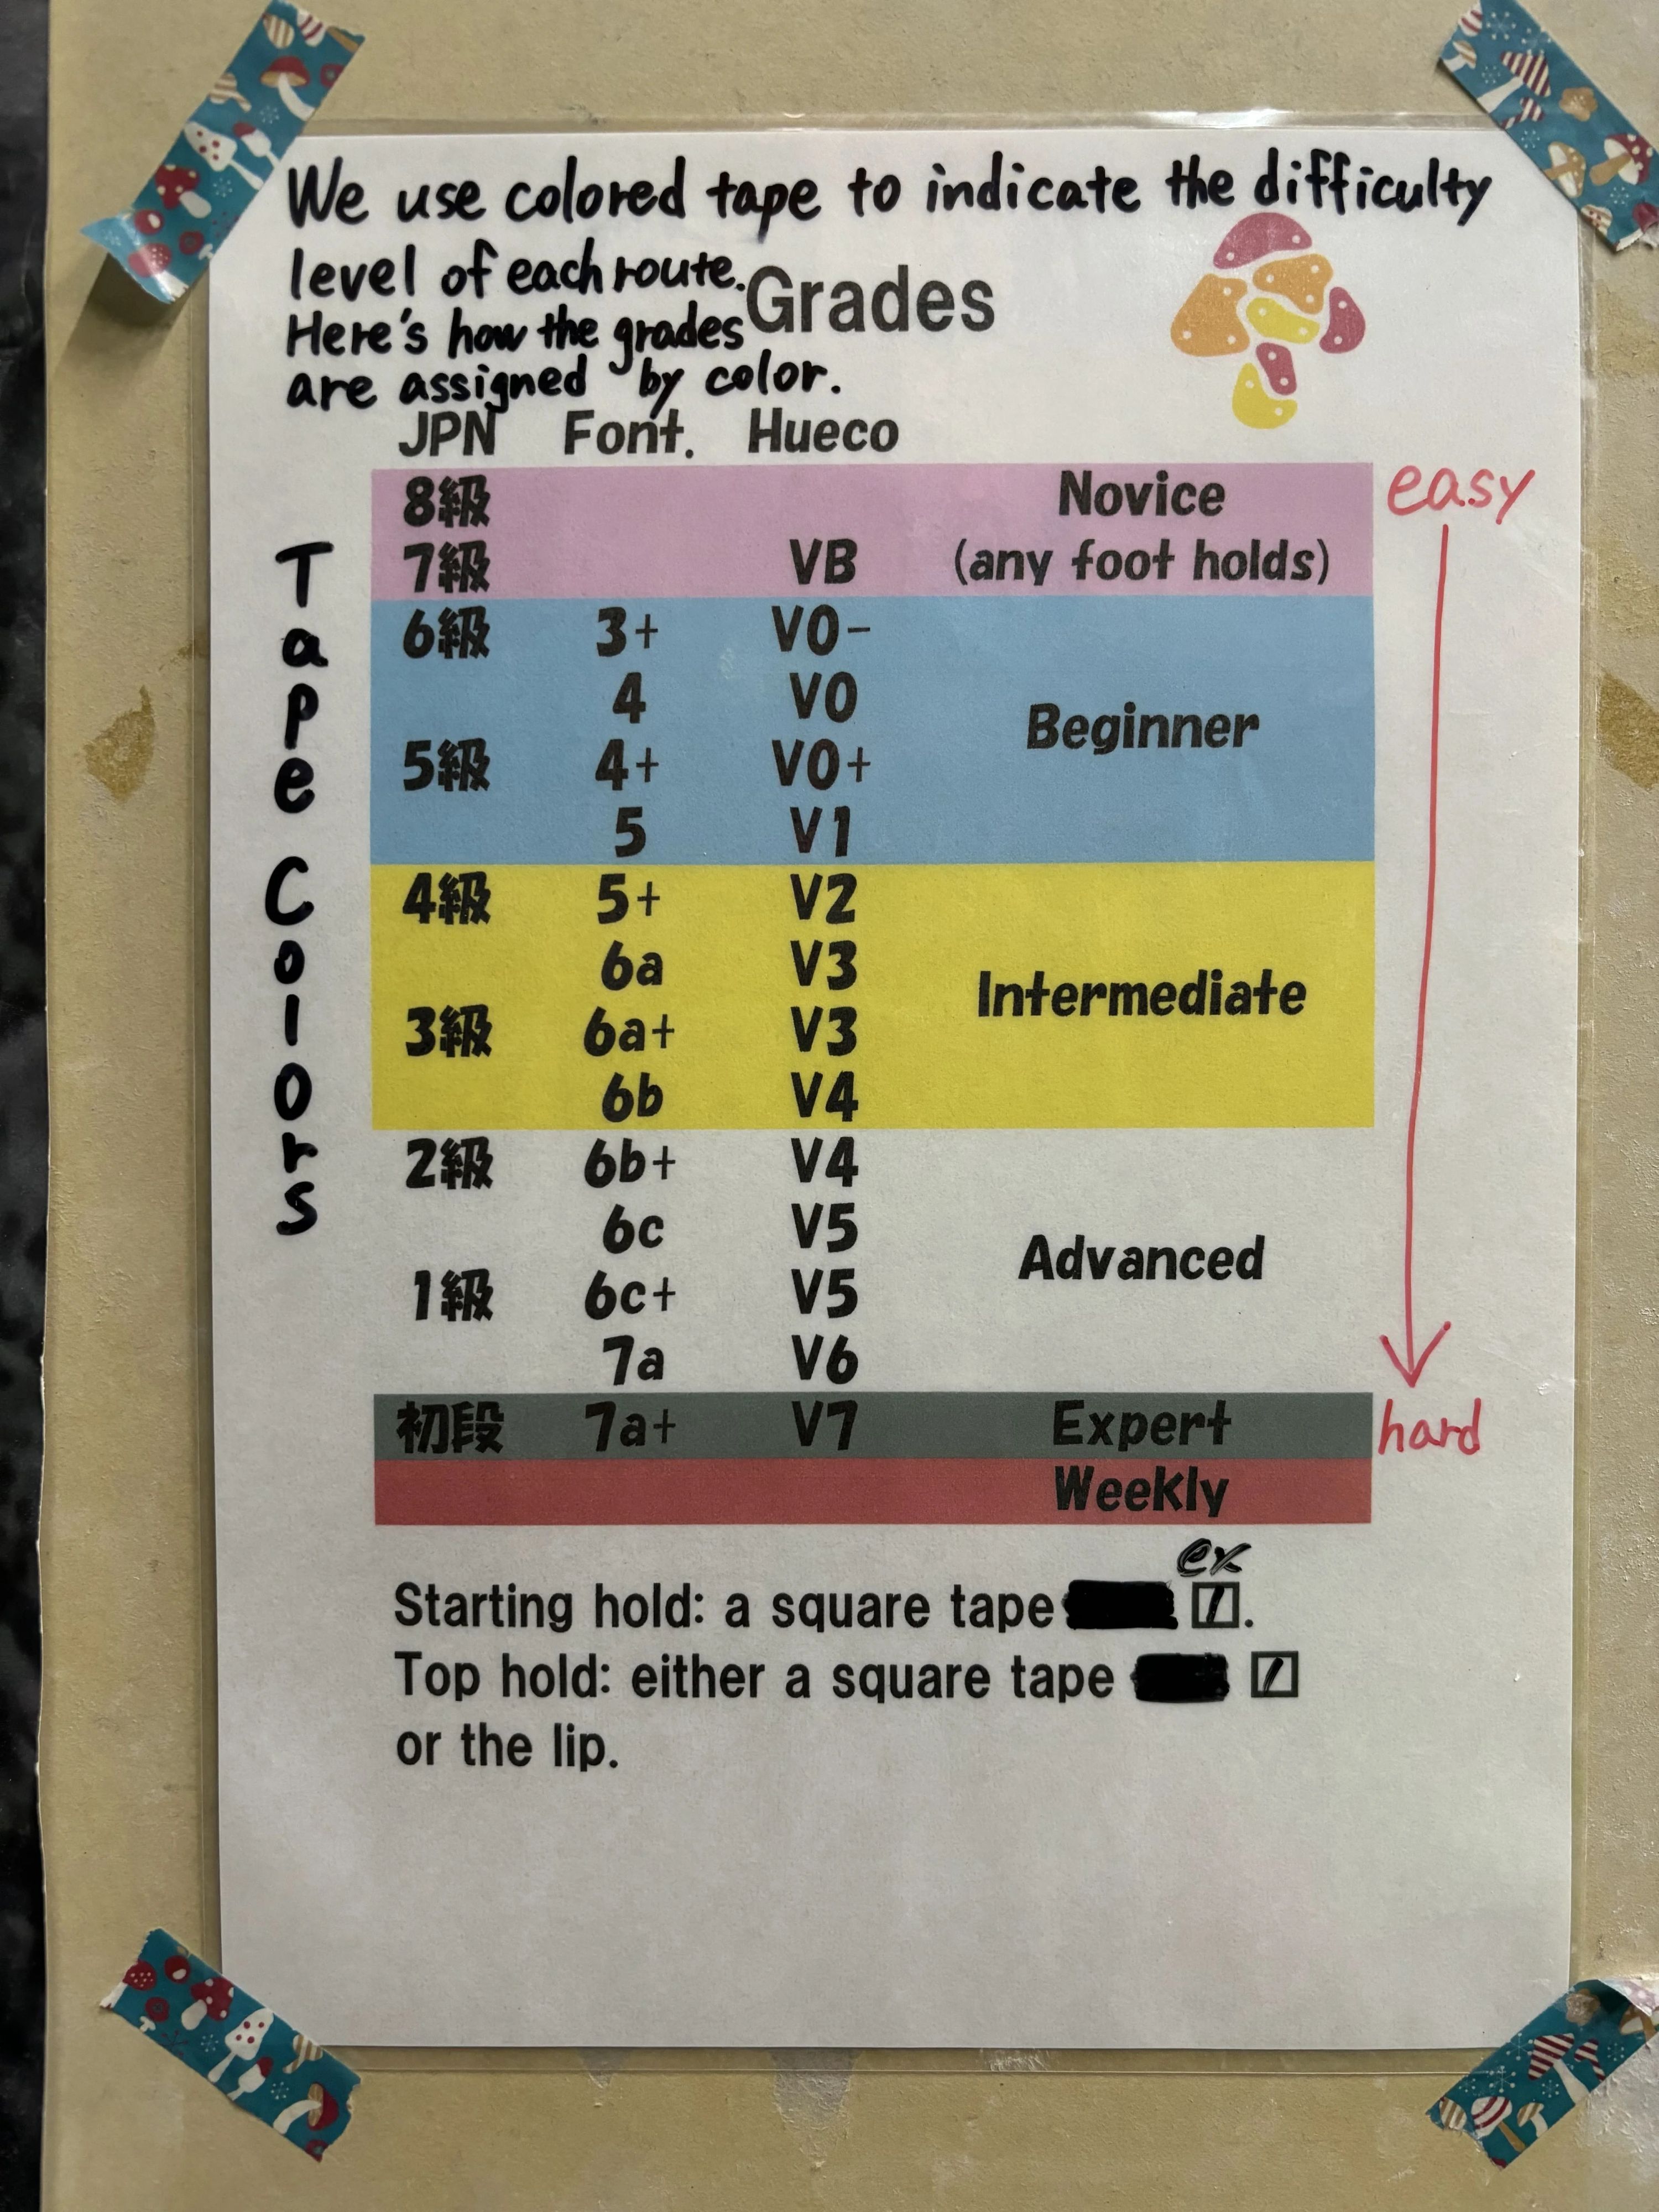 We use colored tape to indicate the difficulty
level of each route.
Grades
Here's how the grades
are assigned by color.
Tape Colors
JPN Font. Hueco
easy
8級 Novice
7級 VB (any foot holds)
6級 3+ V0-
4 V0
Beginner
5級 4+ V0+
5 V1
4級 5+ V2
6a V3
Intermediate
3級 6a+ V3
6b V4
2級 6b+ V4
6c V5
Advanced
1級 6c+ V5
7a V6
初段 7a+ V7 Expert
hard
Weekly
ex
Starting hold: a square tape .
Top hold: either a square tape
or the lip.